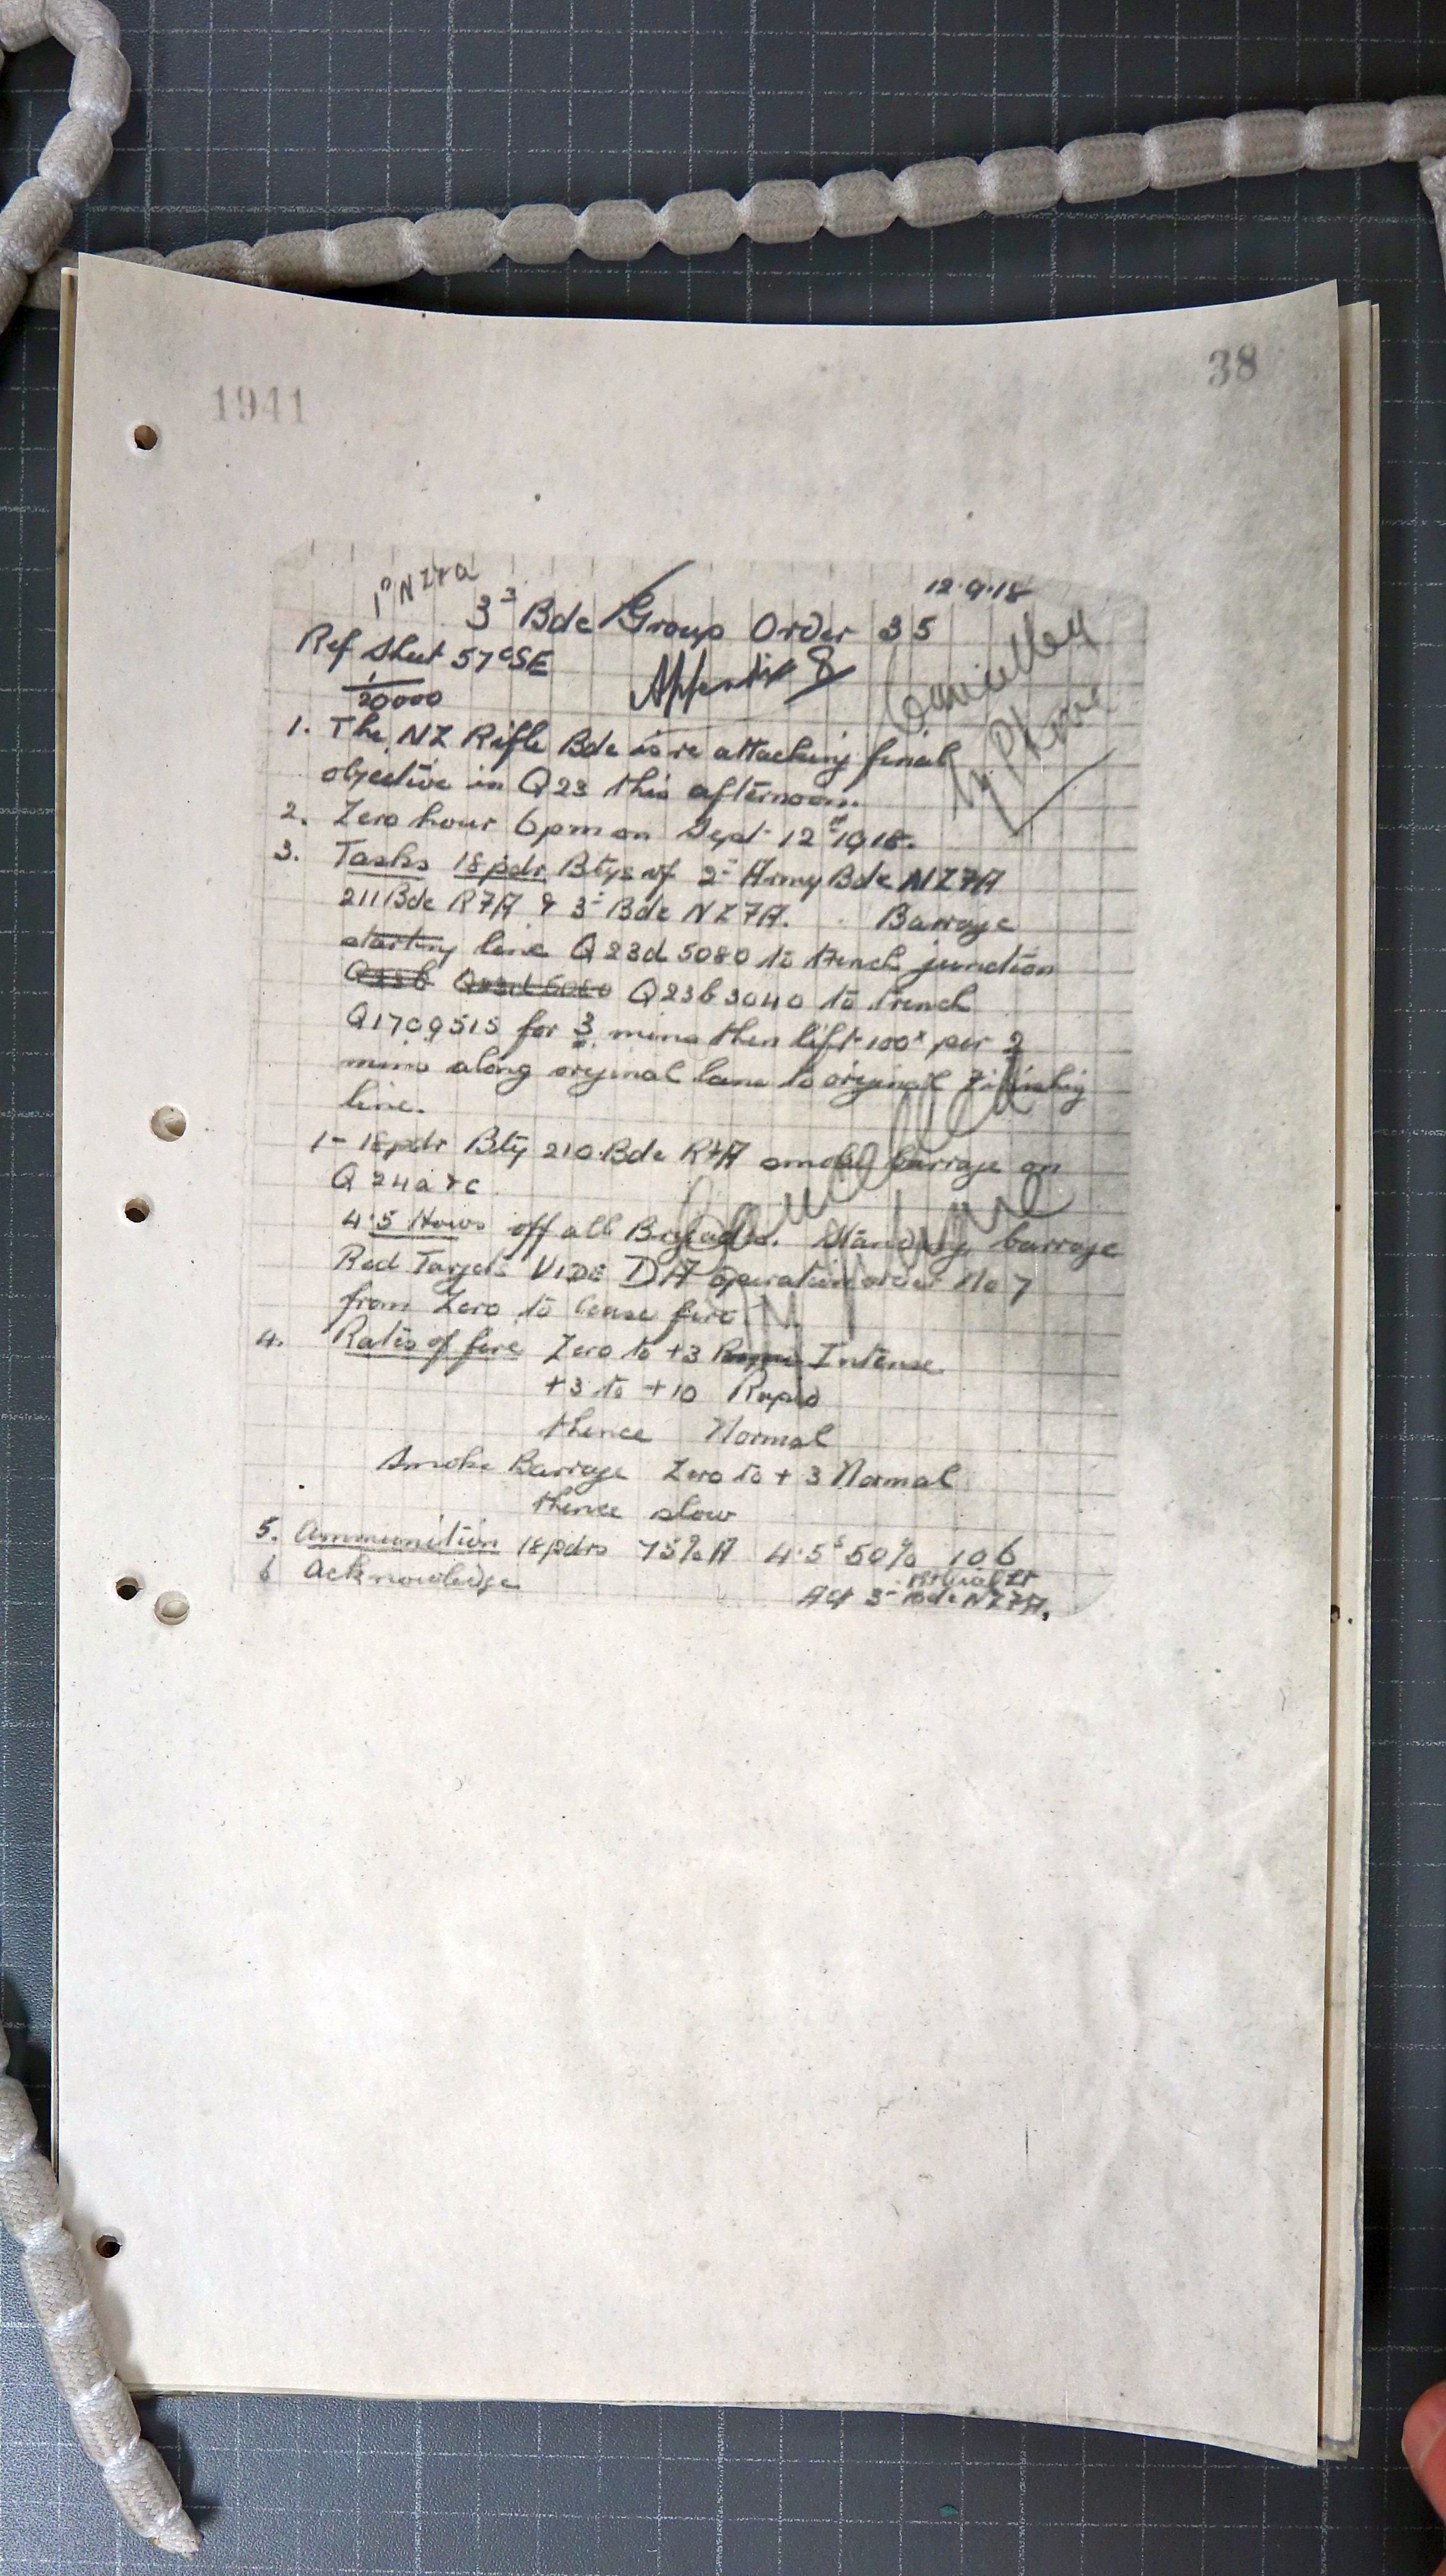 1941
38
12.9.18
3rd Bde Group Order 35
Ref Sheet 57cSE
1
20000
Appendix 8
Cancelled
by Phone
1. The NZ Rifle Bde is re attacking final
objective in Q23 this afternoon.
2. Zero hour 6pm on Sept 12th 1918.
3. Tasks 18pdr Btys of 2nd Army Bde NZFA
211 Bde RFA & 3rd Bde NZFA. Barrage
starting line Q23d 5080 to trench junction
Q23b Q23d Q23b3040 to trench
Q17c9515 for 3 mins then lift 100x per 2
mins along original lane to original finishing
line.
1- 18pdr Bty 210 Bde RFA smoke barrage on
Q24a & c
4.5 Hows off all Brigades. Standing barrage
Red Targets VIDE DA operation order No 7
from Zero to Cease fire.
Cancelled
by Phone
4. Rates of fire Zero to +3 Intense
+3 to +10 Rapid
thence Normal
Smoke Barrage Zero to +3 Normal
thence slow
5. Ammunition 18pdrs 75% A 4.5s 50% 106
6 Acknowledge
Adj 3rd Bde NZFA.